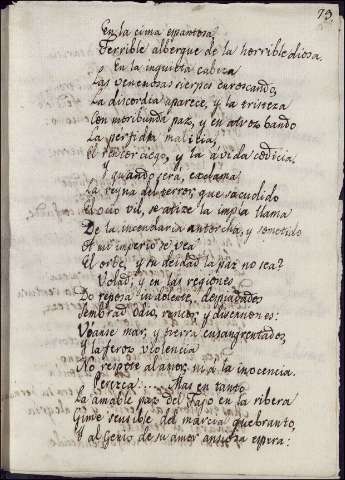 73.
En la cima espantosa,
Terrible albergue de la horrible diosa,
En la inquieta cabeza
Las venenosas sierpes enroscando,
La discordia aparece, y la tristeza
Con moribunda paz, y en atroz bando
La perfidia, malicia,
El rencor ciego, y la avida codicia,
Y quando será, exclama
La reyna del terror, que sacudido
El ocio vil, se atize la impia llama
De la incendaria antorcha, y sometido
A mi imperio se vea
El orbe, y su deidad la paz no sea?
Volad, y en las regiones
Do reposa indolente, despiadados
Sembrad odio, rencor, y disenciones:
Veanse mar, y tierra ensangrentados,
Y la feroz violencia
No respete al amor, ni a la inocencia.
Perezca.... Mas en tanto
La amable paz del Tajo en la ribera
Gime sensible del marcial quebranto,
Y al Genio de su amor ansiosa espera: